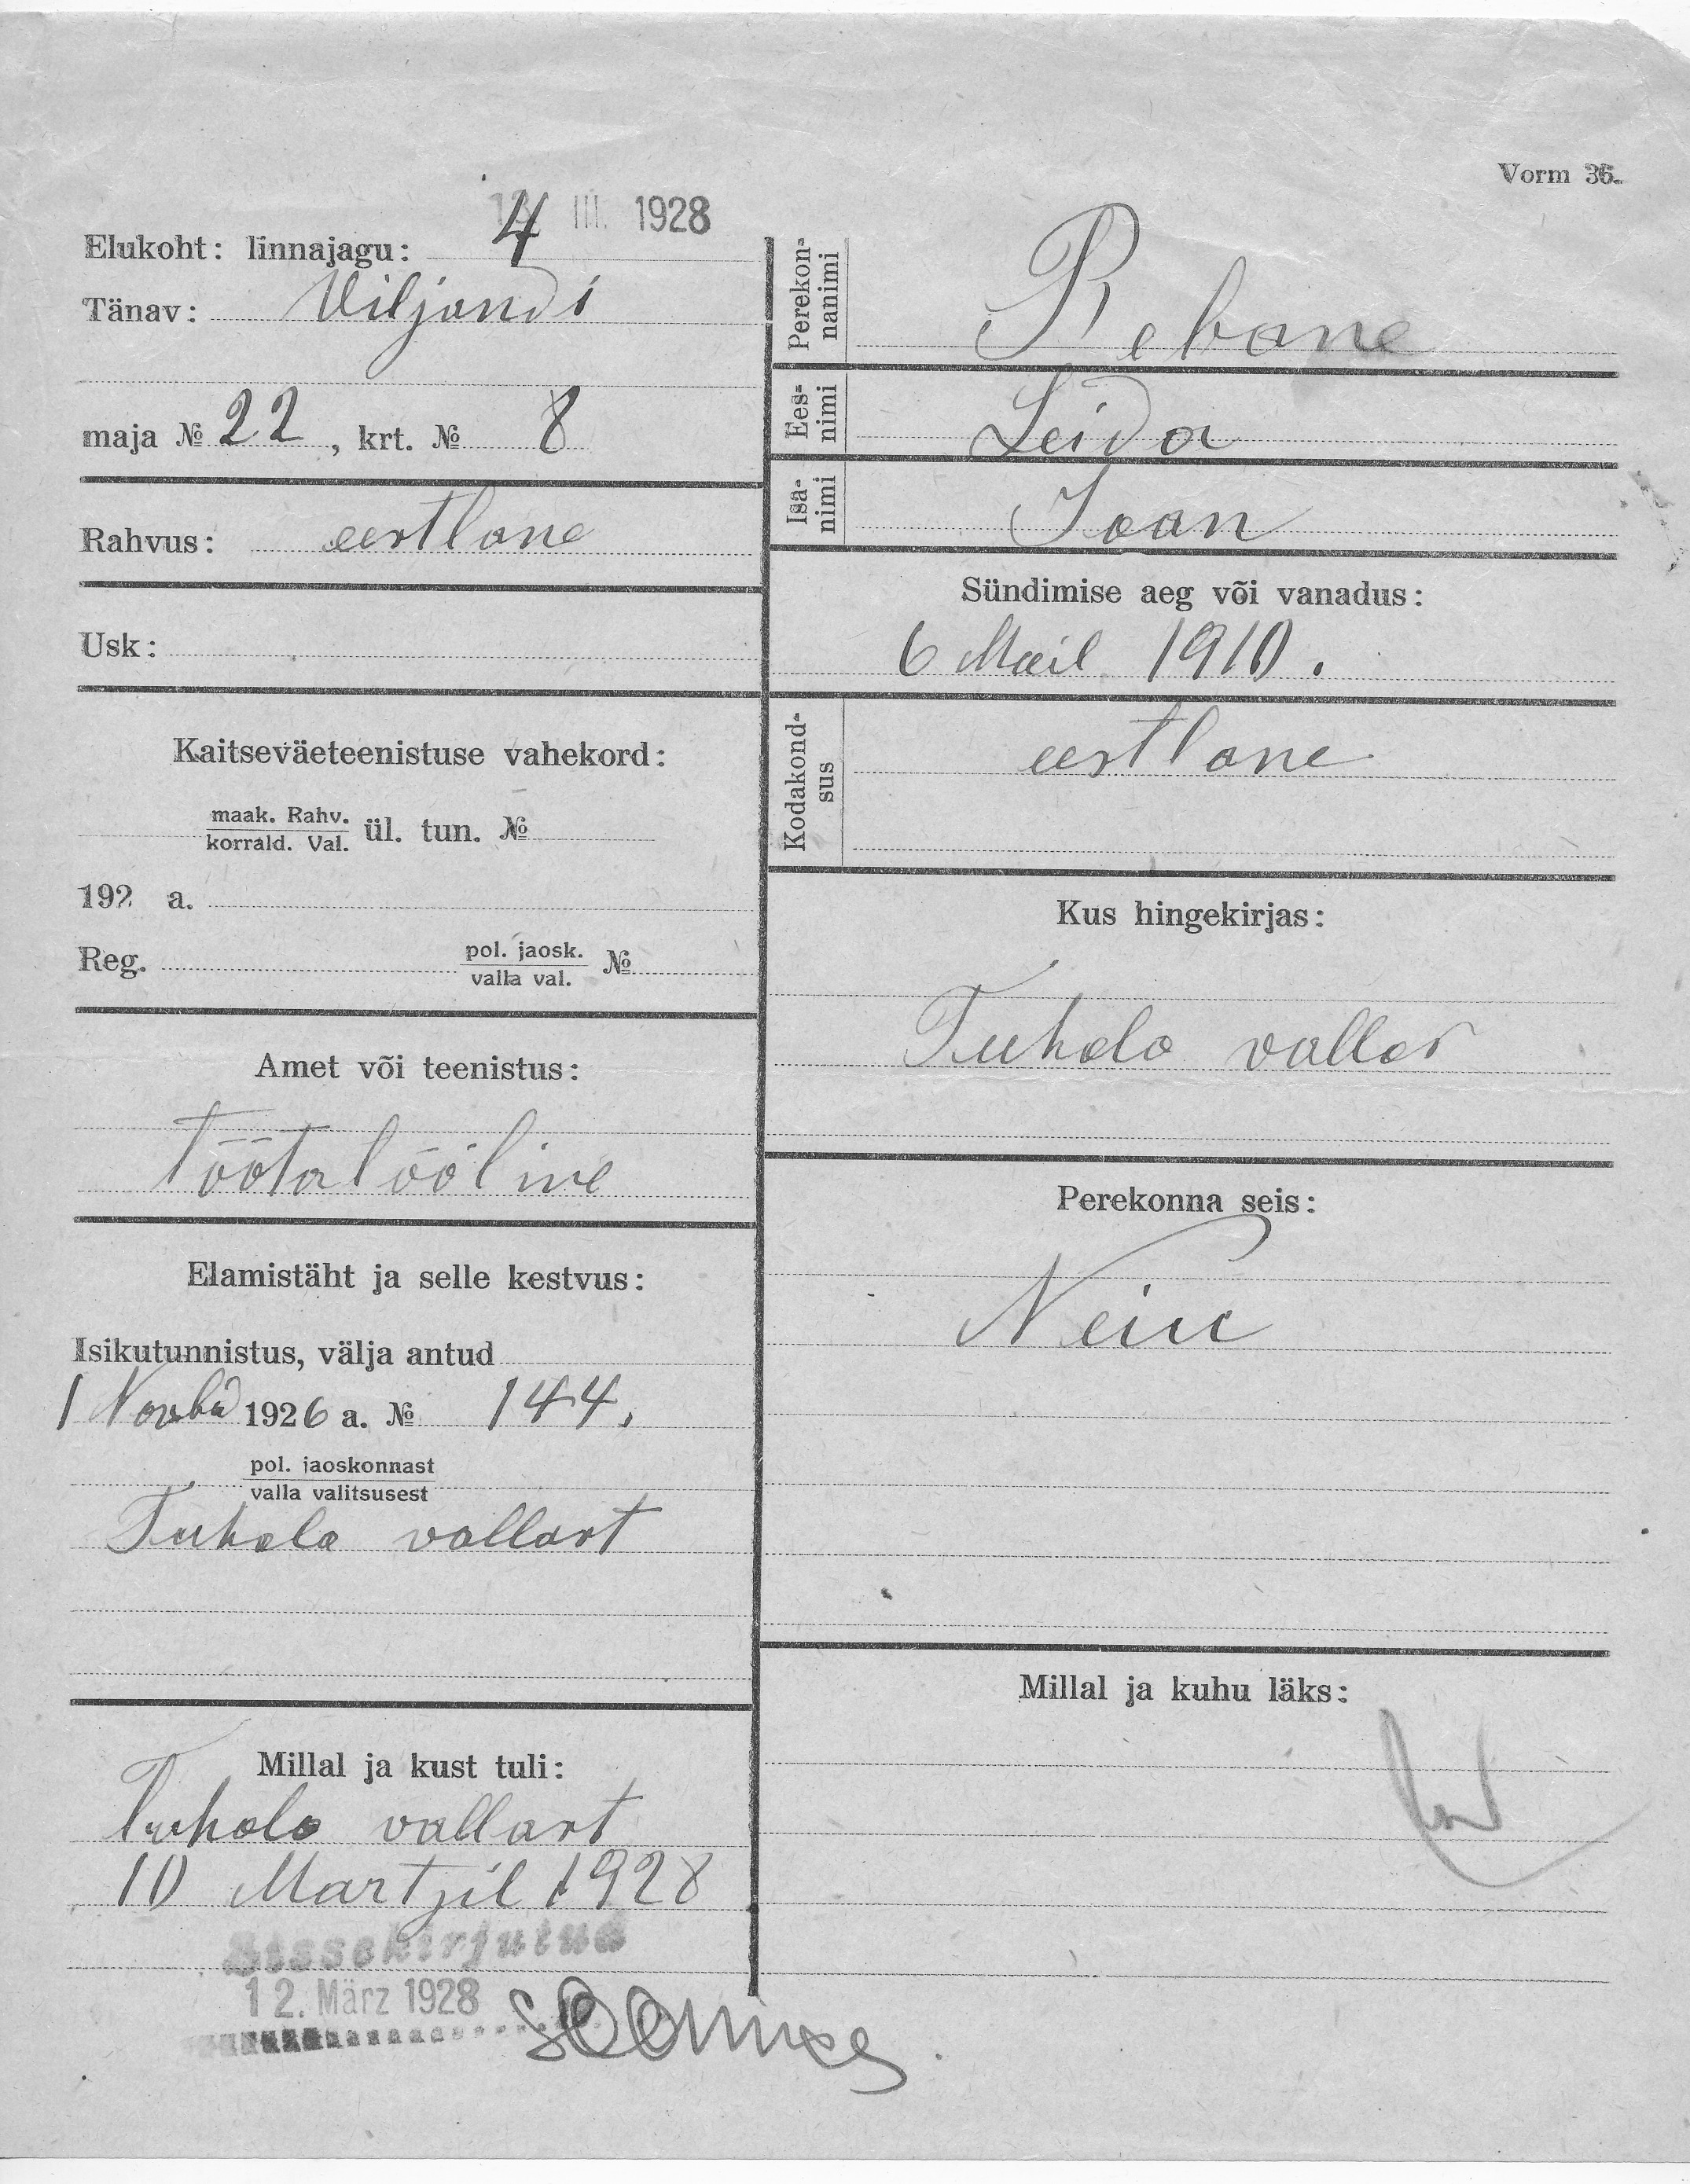 Vorm 36.
III. 1928
Elukoht: linnajagu: 4
Tänav: Viljandi
maja № 22, krt. № 8
Rahvus: eestlane
Usk:
Kaitseväeteenistuse vahekord:
maak. Rahv.
korrald. Val. ül. tun. №
192 a.
Reg. pol. jaosk.
valla val. №
Amet või teenistus:
töötalööline
Elamistäht ja selle kestvus:
Isikutunnistus, välja antud
1 Novbril 1926 a. № 144.
pol. jaoskonnast
valla valitsusest
Tuhala vallast
Millal ja kust tuli:
Tuhala vallast
10 Martzil 1928
Sissekirjutud
12. März 1928
Perekon-
nanimi Rebane
Ees-
nimi Leida
Isa-
nimi Joan
Sündimise aeg või vanadus:
6 Mail 1910.
Kodakond-
sus eestlane
Kus hingekirjas:
Tuhala vallas
Perekonna seis:
Neiu
Millal ja kuhu läks: